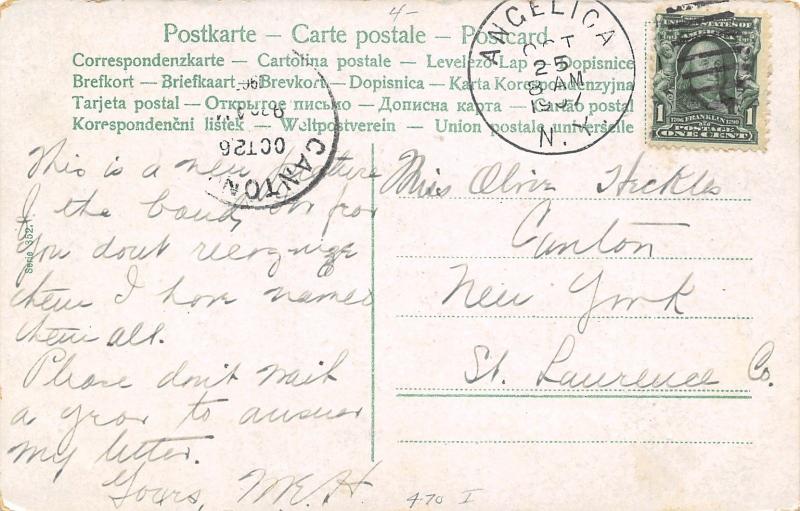 4-
Postkarte — Carte postale — Postcard
Correspondenzkarte — Cartolina postale — Levelező Lap — Dopisnice
Brefkort — Briefkaart — Brevkort — Dopisnica — Karta Korespondenzyjna
Tarjeta postal — Открытое письмо — Дописна карта — postal
Korespondenční lístek — Weltpostverein — Union postale universelle
ANGELICA
OCT
25
8 AM
N. Y.
CANTON
OCT 26
UNITED STATES OF AMERICA
1 FRANKLIN 1
POSTAGE
ONE CENT
Serie 352.
This is a new picture
of the band, 
You dont recognize
them I have named
them all.
Please don't wait
a year to answer
my letter.
Yours, M.E.H.
Miss Olive Heckles
Canton
New York
St. Lawrence Co.
470 I